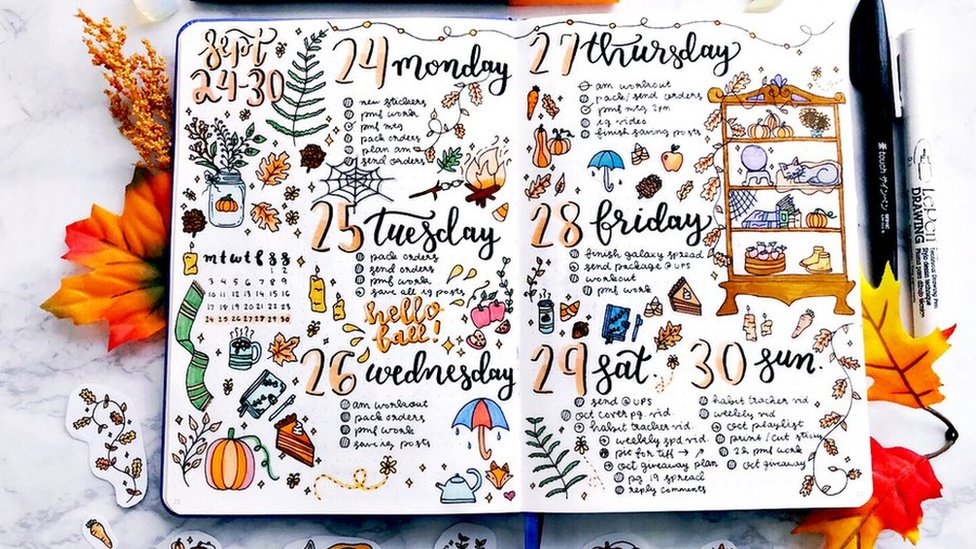 Sept
24-30
24 monday
new stickers
pmf work
pmf mtg
pack orders
plan am
send orders
25 Tuesday
pack orders
send orders
pmf work
save all ig posts
hello
fall!
m t w t f s s
1 2
3 4 5 6 7 8 9
10 11 12 13 14 15 16
17 18 19 20 21 22 23
24 25 26 27 28 29 30
26 wednesday
am workout
pack orders
pmf work
save ig posts
27 thursday
am workout
pack/send orders
pmf mtg 2pm
ig video
finish saving posts
28 friday
finish galaxy spread
send package @ UPS
workout
pmf work
29 sat.
send @ UPS
oct cover pg. vid.
habit tracker vid.
weekly spd vid.
pic for tiff → ↗
oct giveaway plan
pg 19 spread
reply comments
30 sun.
habit tracker vid
weekly vid
oct playlist
print/cut sticky
2h pmf work
oct giveaway
touch サインペン
LePen
DRAWING